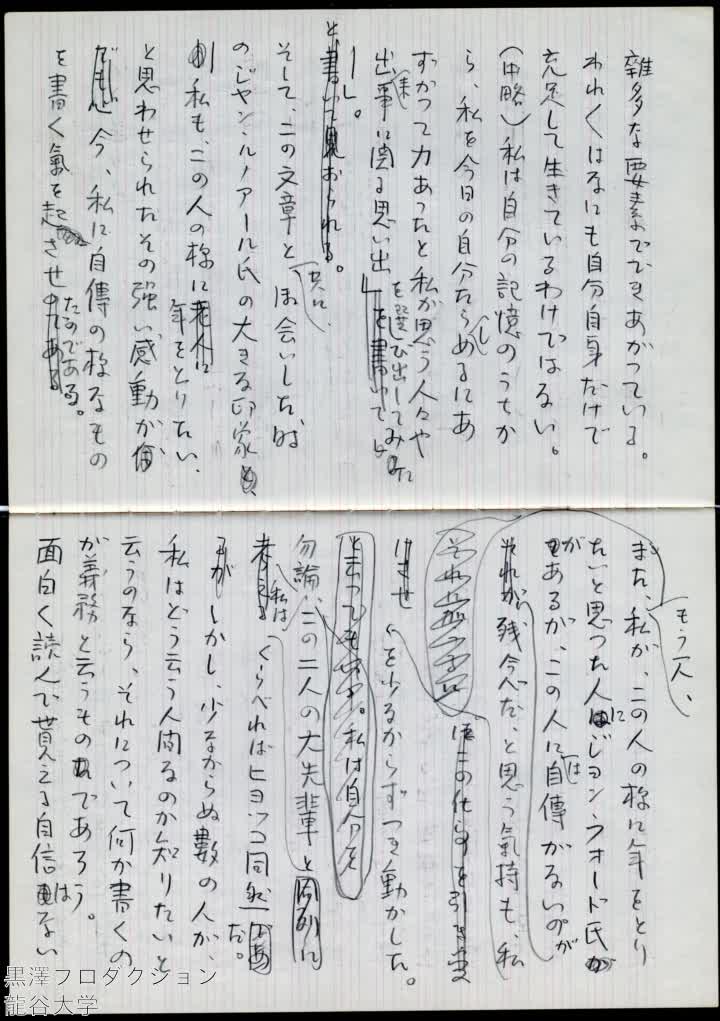 雑多な要素でできあがっている。
われ〱はなにも自分自身だけで
充足して生きているわけではない。
(中略)私は自分の記憶のうちか
ら、私を今日の自分たらしめるにあ
ずかって力あったと私が思う人々や
出来事に関る思い出
」を選び出してみた
と書いておられる。
そして、この文章と共に、
お会いした時
のジャン・ルノアール氏の大きな印象
私も、この人の様に年をとりたい、
と思わせられたその強い感動が
今、私に自傳の様なもの
を書く氣を起させたのである。
もう一人、
また、私が、この人の様に年をとり
たいと思った人にジョン・フォード氏
があるが、この人には自傳がないのが
残念だ、と思う氣持も、私
を少なからずつき動かした。
私は自分を
勿論、この二人の大先輩と
私は
くらべればヒヨッコ同然だ。
が しかし、少なからぬ数の人が、
私はどう云う人間なのか知りたいと
云うのなら、それについて何か書くの
が義務と云うものであろう。
面白く読んで貰える自信はない
黒澤プロダクション
龍谷大学